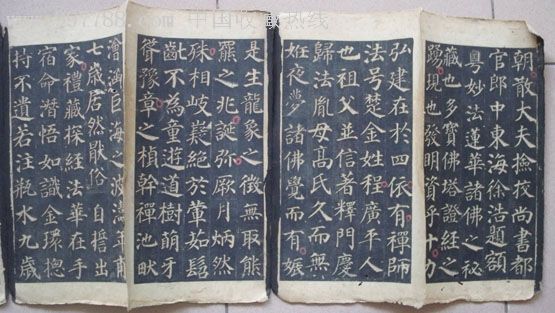 www.97788.com 中国收藏热线
朝散大夫撿校尚書都
官郎中東海徐浩題額
粵妙法蓮華諸佛之秘
藏也多寶佛塔證經之
踴現也發明資乎十力
弘建在於四依有禪師
法号楚金姓程廣平人
也祖父並信著釋門慶
歸法胤母高氏久而無
姙夜夢諸佛覺而有娠
是生龍象之徵無取熊
羆之兆誕弥厥月炳然
殊相岐嶷絕於葷茹髫
齓不為童遊道樹萌牙
聳豫章之楨幹禪池畎
澮涵巨海之波濤年甫
七歲居然猒俗自誓出
家禮藏探經法華在手
宿命潛悟如識金環揔
持不遺若注瓶水九歲